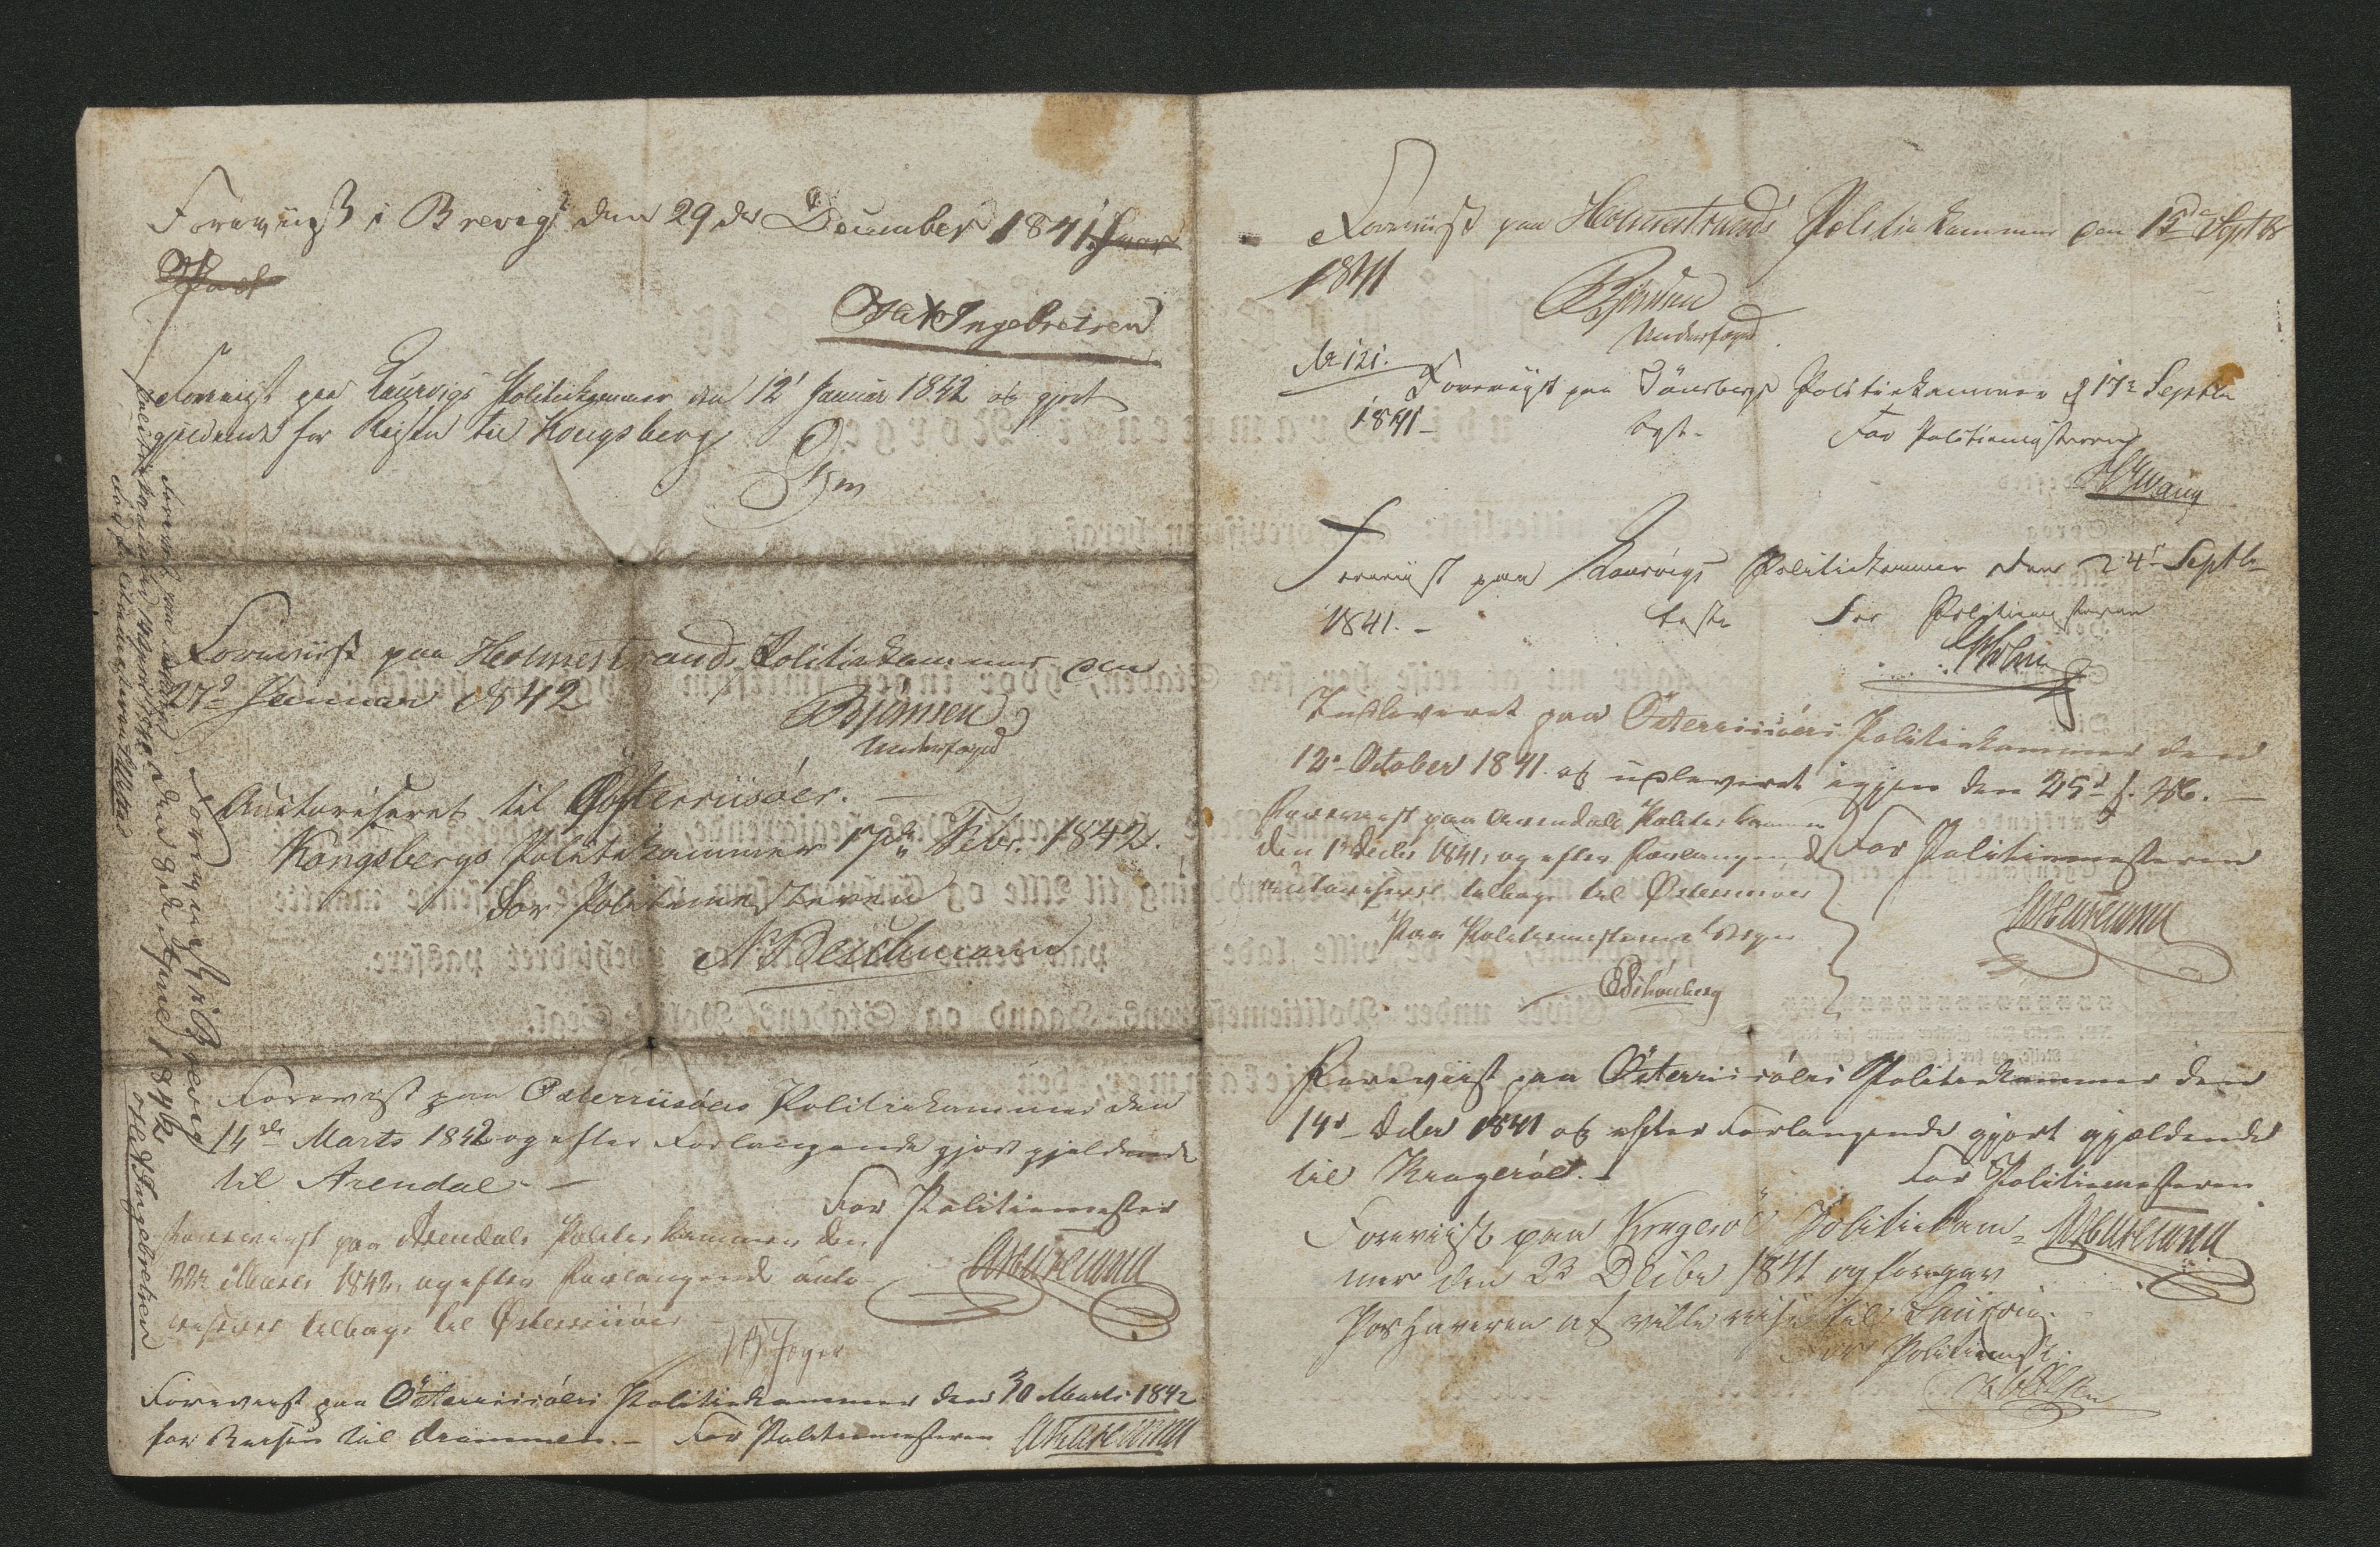 Foreviist i Brevig den 29de December 1841
Ole Ingebretsen
Foreviist paa Laurvigs Politiekammer den 12' Januar 1842 og gjort
gjeldende for Reisen til Kongsberg
Foreviist paa Holmestrands Politiekammer den
27d Januar 1842
Bjørnsen
Underfoged
Auctoriseret til Østerriisöer. —
Kongsbergs Politiekammer 17de Febr. 1842.
For Politiemesteren
Foreviist paa Österriisöers Politiekammer den
14de Marts 1842 og efter Forlangende gjort gjeldende
til Arendal. —
For Politiemester
Foreviist paa Arendals Politiekammer den
22de Marts 1842, og efter Forlangende auto-
riseret tilbage til Østerriisöer
Foreviist paa Österriisöers Politiekammer den 30 Marts 1842
for Reisen til Drammen. — For Politiemesteren
Foreviist paa
Politiekammer 1842
For
Foreviist i Brevig
den 8de 1842
Ole Ingebretsen
Foreviist paa Holmestrands Politiekammer den 15de Septbr
1841
Bjørnsen
Underfoged
No 121.
Foreviist paa Tönsbergs Politiekammer d 17de Septbr
1841 —
For Politiemesteren
Foreviist paa Laurvigs Politiekammer den 24' Septbr
1841. — For Politiemesteren
Indleveret paa Österriisöers Politiekammer den
12' October 1841 og udleveret igjen den 25d s. M. —
For Politiemesteren
Foreviist paa Arendals Politiekammer
den 1' Decbr 1841, og efter Forlangende
autoriseret tilbage til Østerriisöer
Paa Politiemesterens Vegne
Schönberg
Foreviist paa Österriisöers Politiekammer den
14d Decbr 1841 og efter Forlangende gjort gjældende
til Krageröe. —
For Politiemesteren
Foreviist paa Krageröe Politiekam-
mer den 23 Decbr 1841 og foregav
Pashaveren at ville reise til Laurvig.
For Politiemest: